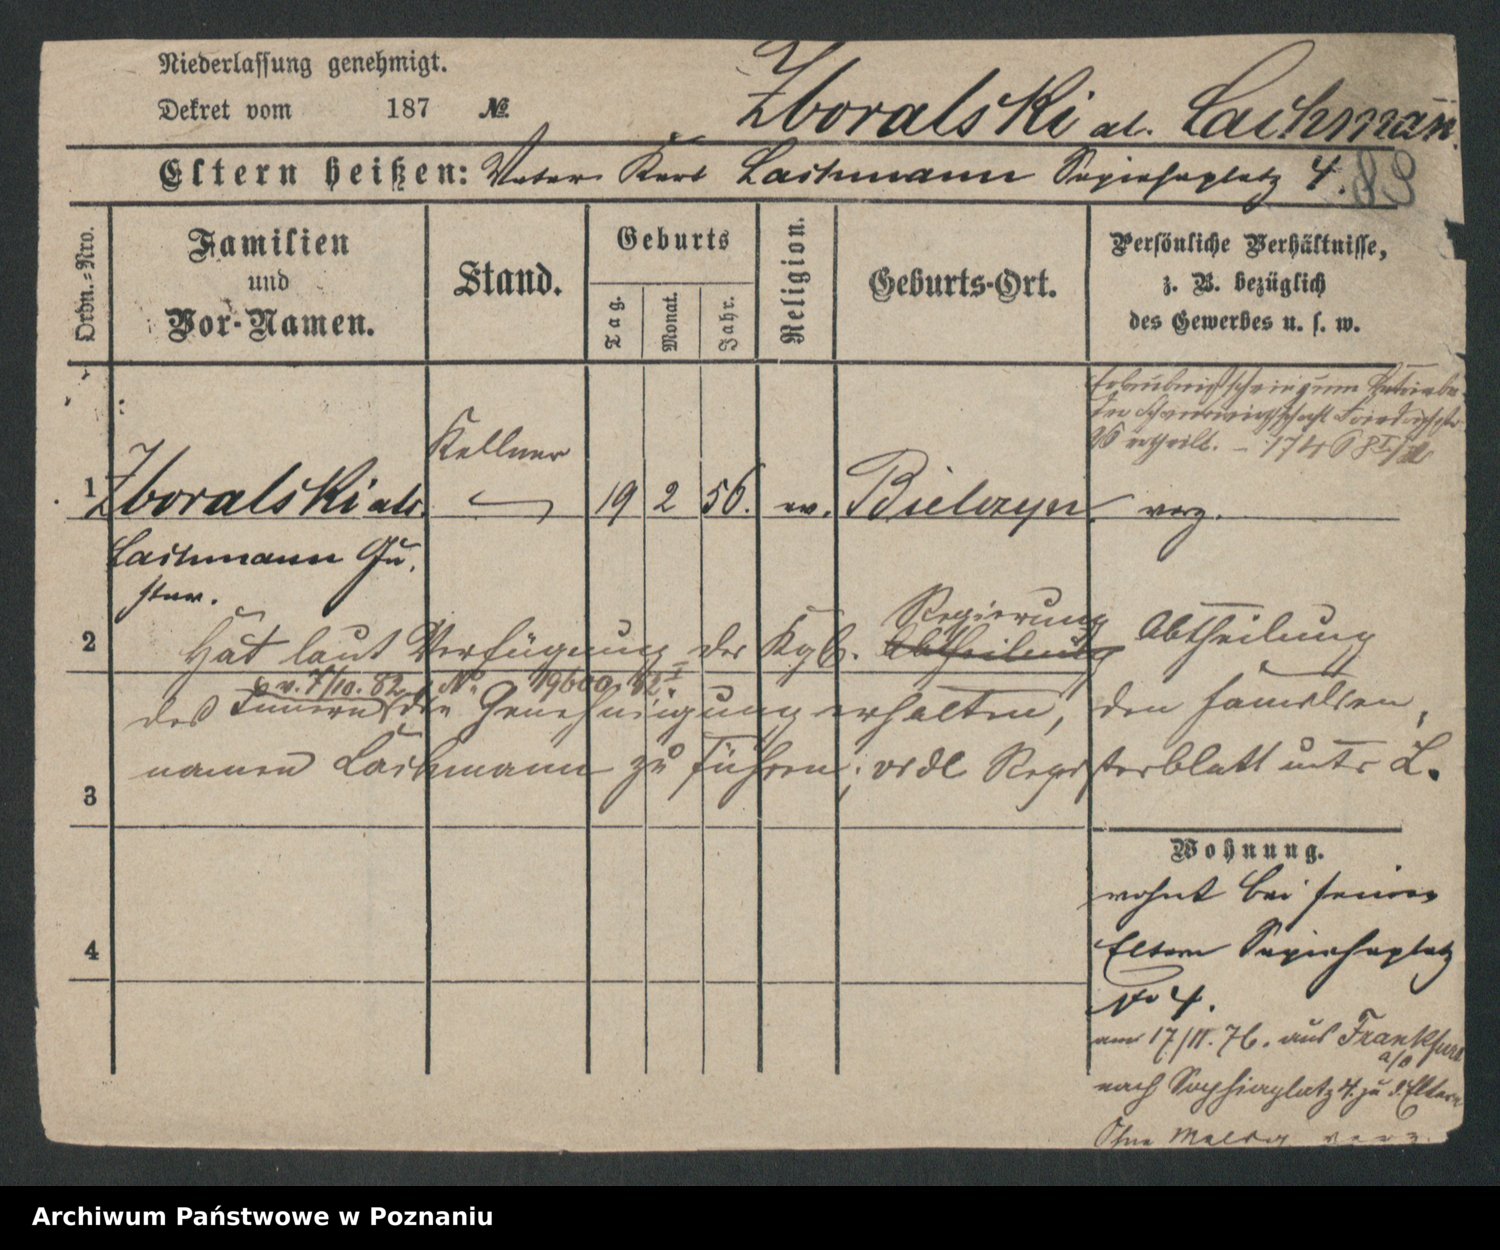 Niederlassung genehmigt.
Dekret vom 187 №
Zboralski al. Lachmann.
Eltern heißen: Vater Karl Lachmann Sapiehaplatz 4.
Ordn.-Nro.
Familien
und
Vor-Namen.
Stand.
Geburts
Tag.
Monat.
Jahr.
Religion.
Geburts-Ort.
Persönliche Verhältnisse,
z. B. bezüglich
des Gewerbes u. s. w.
Erlaubnißschein zum Betriebe
der Schankwirthschaft
ertheilt. – 174
Kellner
1 Zboralski als. 19 2 56. ev. Bielczyn. verz.
Lachmann Gu
stav.
2 Hat laut Verfügung der Kgl. Regierung Abtheilung Abtheilung
v. 7/10. 82 No
des Innern die Genehmigung erhalten, den Familien
namen Lachmann zu führen; Registerblatt unter L.
3
Wohnung.
wohnt bei seinen
Eltern Sapiehaplatz
No 4.
4
am 17/11. 76. aus Frankfurt
a/O
nach Sapiehaplatz 4. zu d. Eltern
verz.
Archiwum Państwowe w Poznaniu